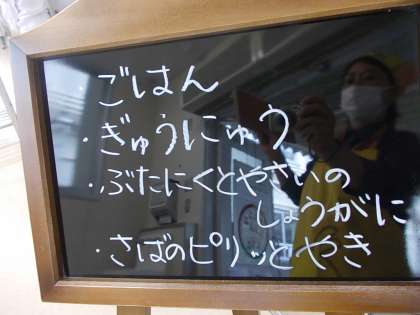 ごはん
・ぎゅうにゅう
・ぶたにくとやさいの
しょうがに
・さばのピリッとやき